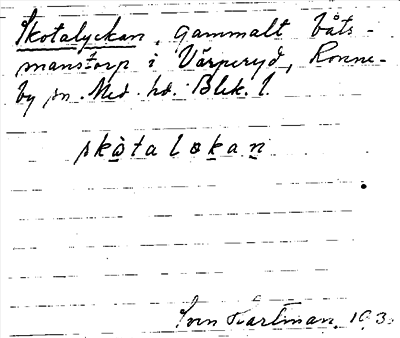 Skotalyckan, gammalt båts-
manstorp i Värperyd, Ronne-
by sn. Med. hd. Blek. l.
skòtalokan
Sven Hartman, 193